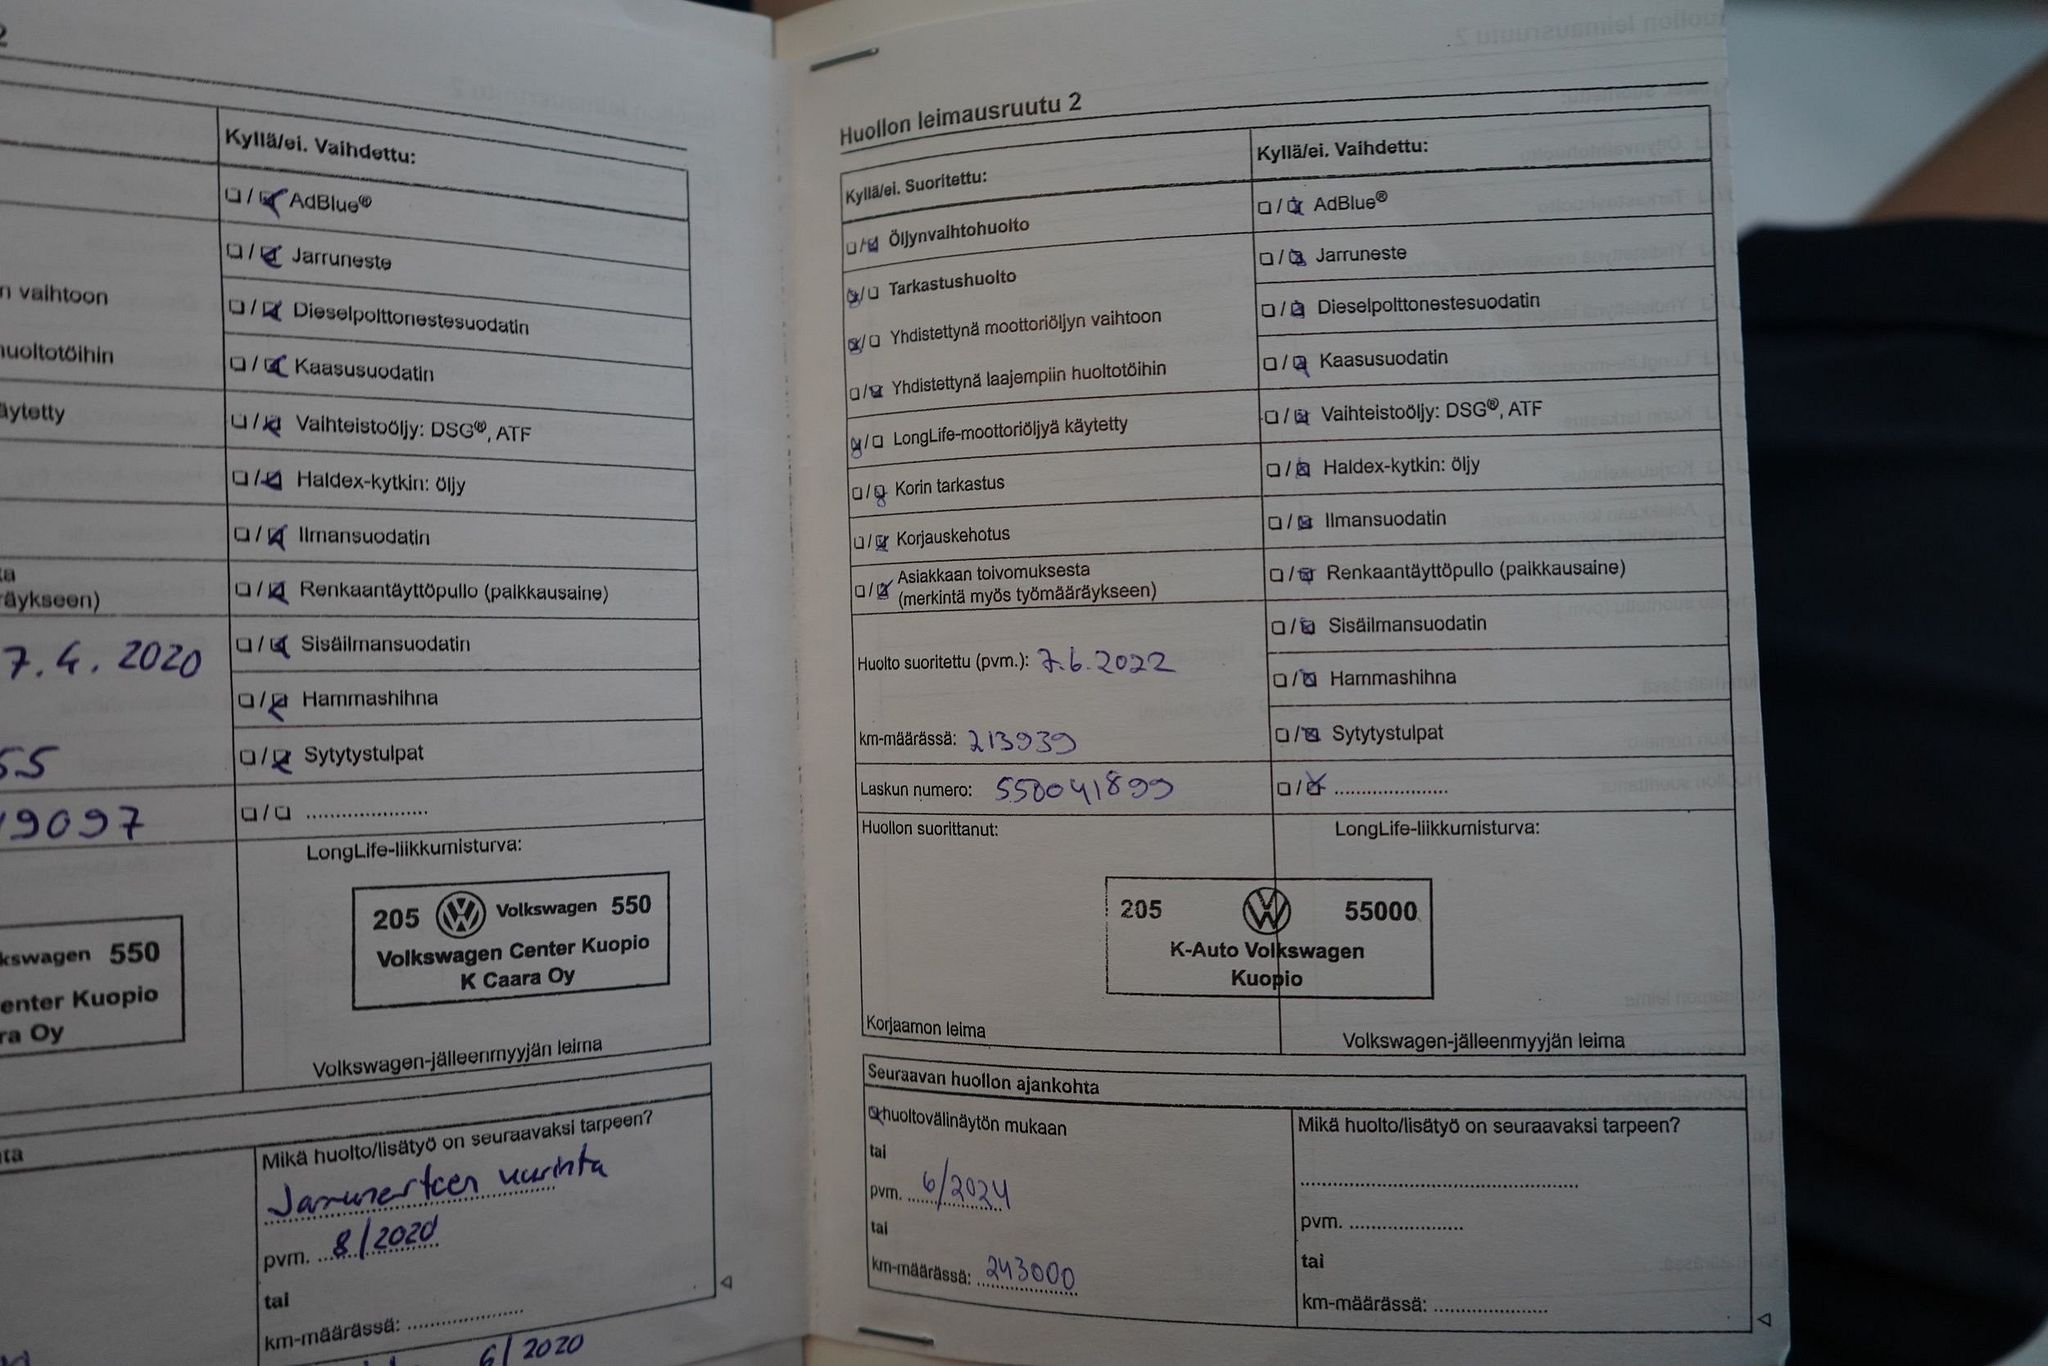 2
Kyllä/ei. Vaihdettu:
☐/☑ AdBlue®
☐/☑ Jarruneste
n vaihtoon
☐/☑ Dieselpolttonestesuodatin
huoltotöihin
☐/☑ Kaasusuodatin
äytetty
☐/☑ Vaihteistoöljy: DSG®, ATF
☐/☑ Haldex-kytkin: öljy
☐/☑ Ilmansuodatin
ta
räykseen)
☐/☑ Renkaantäyttöpullo (paikkausaine)
7.4.2020
☐/☑ Sisäilmansuodatin
☐/☑ Hammashihna
55
☐/☑ Sytytystulpat
19097
☐/☐ ......................
LongLife-liikkumisturva:
kswagen 550
enter Kuopio
ra Oy
205 Volkswagen 550
Volkswagen Center Kuopio
K Caara Oy
Volkswagen-jälleenmyyjän leima
ta
Mikä huolto/lisätyö on seuraavaksi tarpeen?
Jarrunesteen
pvm. 8/2020
tai
km-määrässä: ......................
6/2020
Huollon leimausruutu 2
Kyllä/ei. Suoritettu:
☐/☑ Öljynvaihtohuolto
☑/☐ Tarkastushuolto
☑/☐ Yhdistettynä moottoriöljyn vaihtoon
☐/☑ Yhdistettynä laajempiin huoltotöihin
☑/☐ LongLife-moottoriöljyä käytetty
☐/☑ Korin tarkastus
☐/☑ Korjauskehotus
☐/☑ Asiakkaan toivomuksesta
(merkintä myös työmääräykseen)
Huolto suoritettu (pvm.): 7.6.2022
km-määrässä: 213939
Laskun numero: 550041899
Huollon suorittanut:
Kyllä/ei. Vaihdettu:
☐/☑ AdBlue®
☐/☑ Jarruneste
☐/☑ Dieselpolttonestesuodatin
☐/☑ Kaasusuodatin
☐/☑ Vaihteistoöljy: DSG®, ATF
☐/☑ Haldex-kytkin: öljy
☐/☑ Ilmansuodatin
☐/☑ Renkaantäyttöpullo (paikkausaine)
☐/☑ Sisäilmansuodatin
☐/☑ Hammashihna
☐/☑ Sytytystulpat
☐/☑ ......................
LongLife-liikkumisturva:
205 55000
K-Auto Volkswagen
Kuopio
Korjaamon leima
Volkswagen-jälleenmyyjän leima
Seuraavan huollon ajankohta
☑ huoltovälinäytön mukaan
tai
pvm. 6/2024
tai
km-määrässä: 243000
Mikä huolto/lisätyö on seuraavaksi tarpeen?
......................................................
pvm. ......................
tai
km-määrässä: ......................